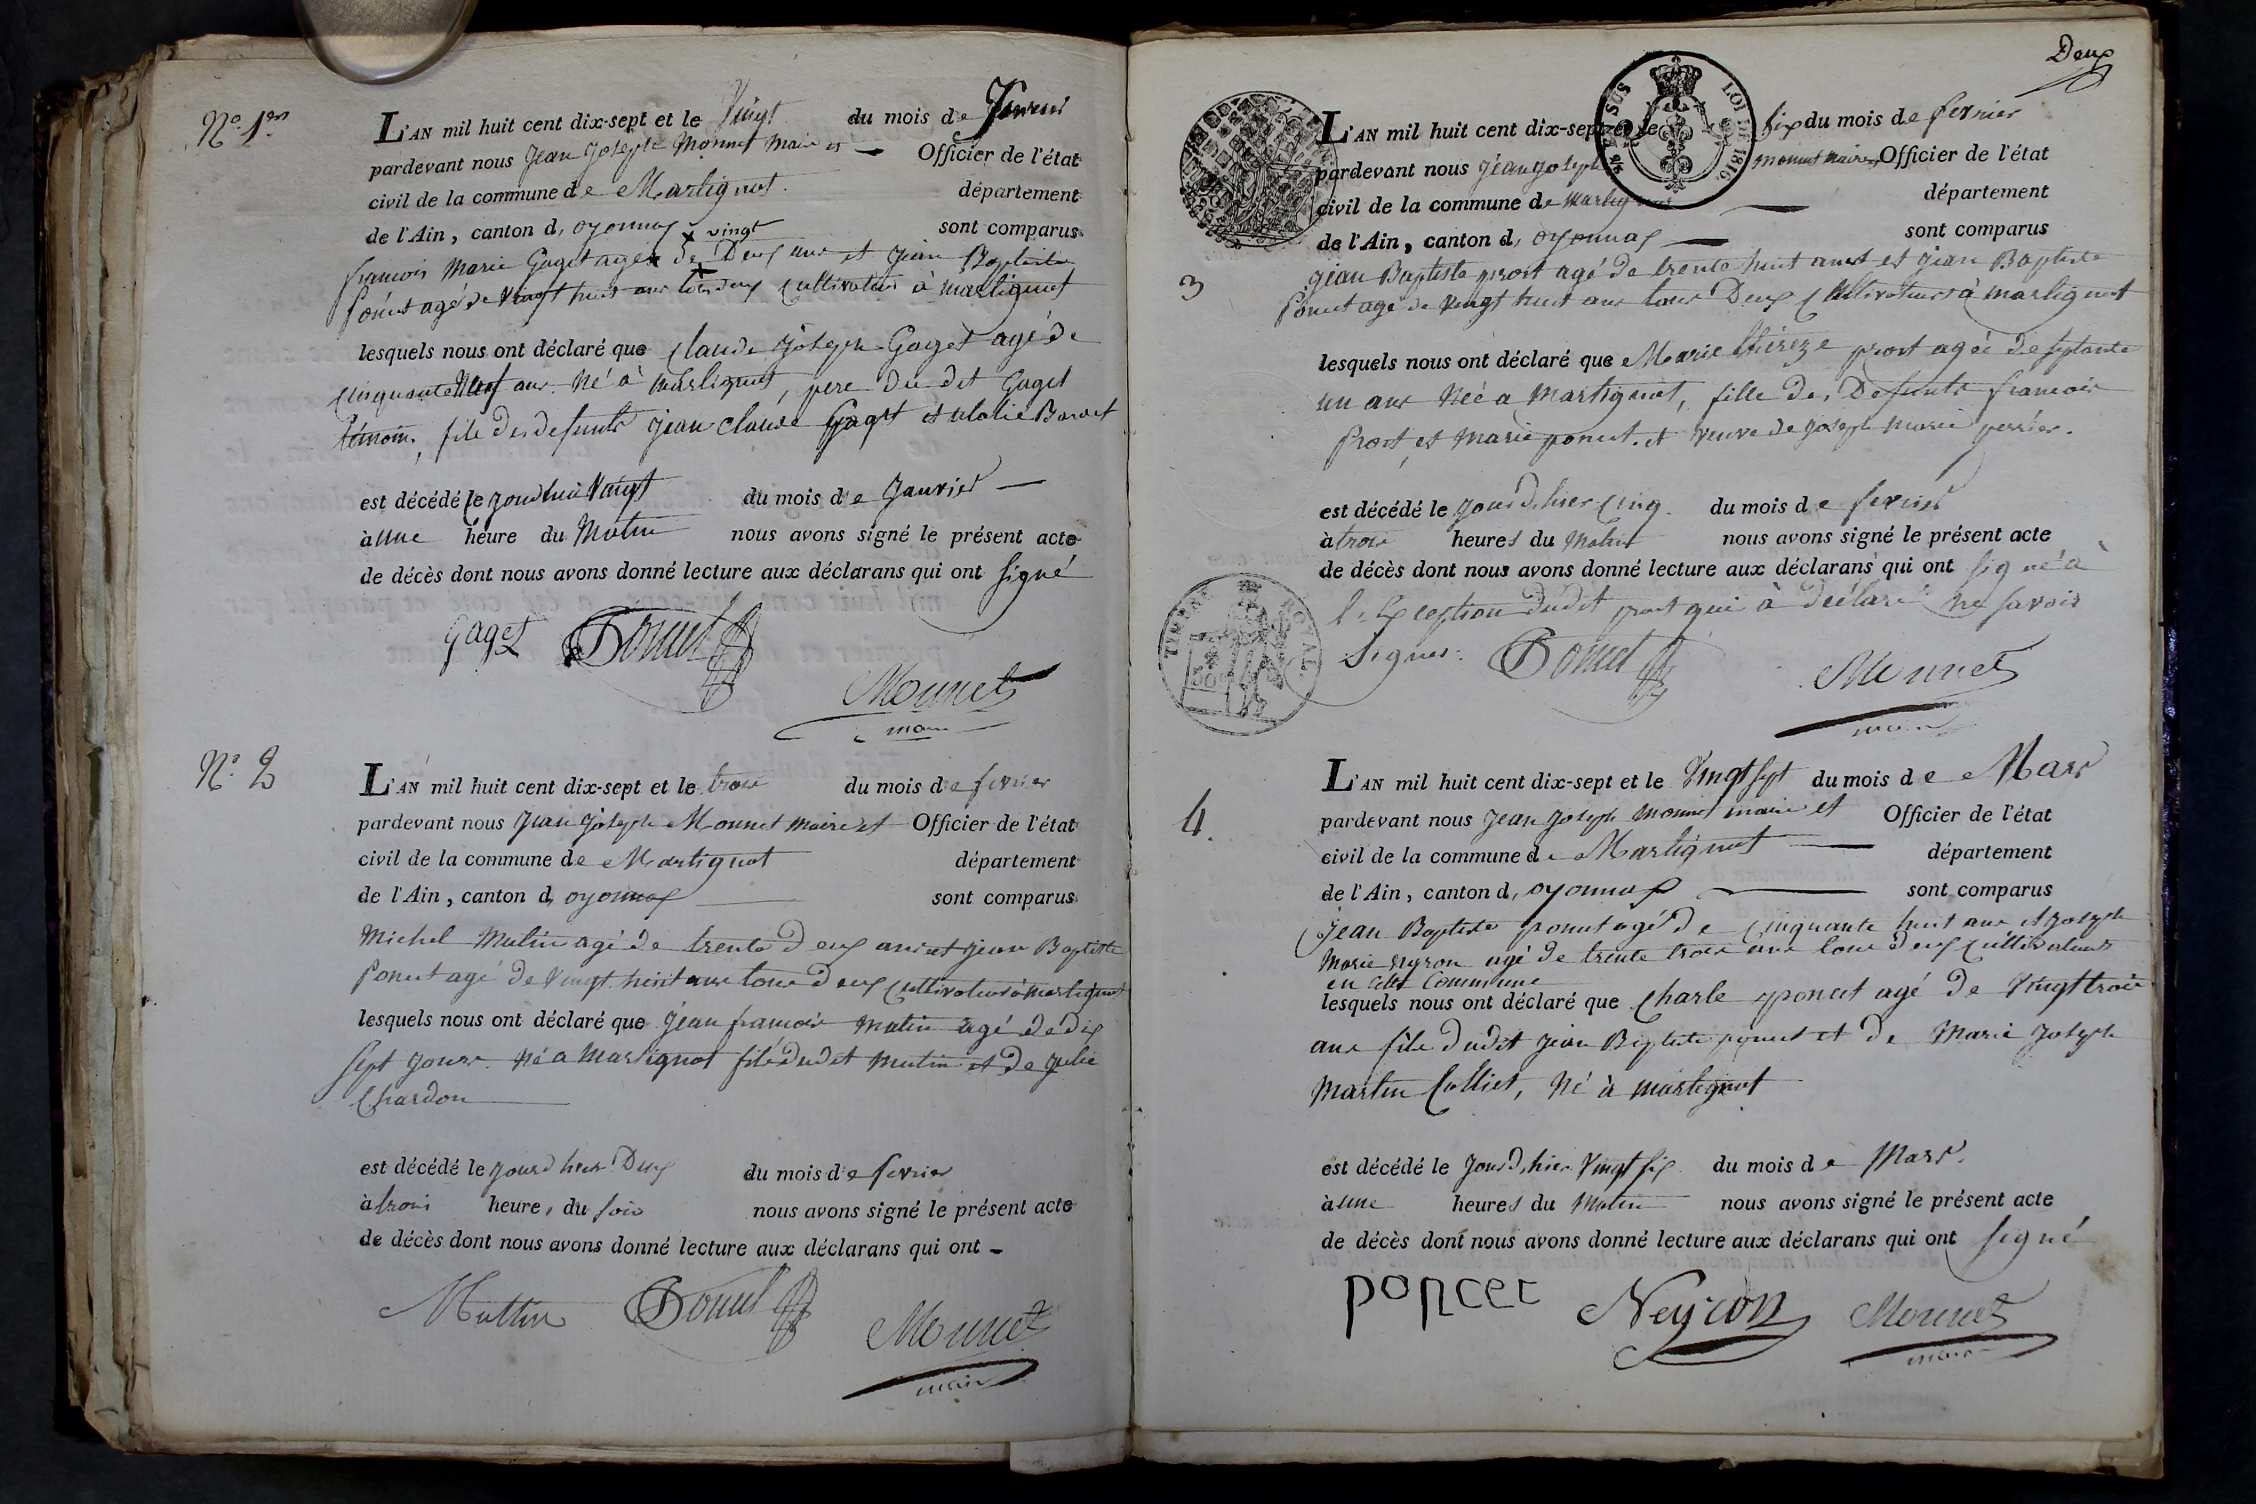 N.o 1.er
L'AN mil huit cent dix-sept et le Vingt du mois de Janvier
pardevant nous Jean Joseph Monnet Maire et Officier de l'état
civil de la commune de Martignat département
de l'Ain, canton d, oyonnax sont comparus
vingt
francois Marie Gaget agé de Deux ans et Jean Baptiste
Poncet agé de Vingt huit ans tous deux Cultivateurs à martignat
lesquels nous ont déclaré que Claude Joseph Gaget agé de
Cinquante Neuf ans Né à martignat, pere du dit Gaget
témoin, fils des defunts Jean Claude Gaget et
est décédé le jourdhui Vingt du mois de Janvier
à une heure du Matin nous avons signé le présent acte
de décès dont nous avons donné lecture aux déclarans qui ont signé
Gaget Poncet
Monnet
maire
N.o 2
L'AN mil huit cent dix-sept et le trois du mois de fevrier
pardevant nous Jean Joseph Monnet Maire et Officier de l'état
civil de la commune de Martignat département
de l'Ain, canton d, oyonnax sont comparus
Michel Mutin agé de trente deux ans et Jean Baptiste
Poncet agé de Vingt huit ans tous deux Cultivateurs à martignat
lesquels nous ont déclaré que Jean francois Mutin agé de dix
sept jours Né a Martignat fils dudit Mutin et de Julie
Chardon
est décédé le jourd hier Deux du mois de fevrier
à trois heures du soir nous avons signé le présent acte
de décès dont nous avons donné lecture aux déclarans qui ont
Muttin Poncet
Monnet
maire
Deux
3
L'AN mil huit cent dix-sept et le six du mois de fevrier
pardevant nous Jean Joseph monnet maire Officier de l'état
civil de la commune de Martignat département
de l'Ain, canton d, oyonnax sont comparus
EN SUS LOI DE 1816
Jean Baptiste prost agé de trente huit ans et Jean Baptiste
Poncet agé de Vingt huit ans tous Deux Cultivateurs à martignat
lesquels nous ont déclaré que Marie thereze prost agée de septante
un ans Née a Martignat, fille des Defunts francois
Prost, et Marie poncet. et veuve de Joseph Marie perrier.
est décédé le jourd,hier Cinq du mois de fevrier
à trois heures du Matin nous avons signé le présent acte
de décès dont nous avons donné lecture aux déclarans qui ont signé à
l'Exception dudit prost qui à déclaré ne savoir
signer.
TIMBRE ROYAL
Poncet Monnet
maire
4.
L'AN mil huit cent dix-sept et le Vingt sept du mois de Mars
pardevant nous Jean Joseph Monnet maire et Officier de l'état
civil de la commune de Martignat département
de l'Ain, canton d, oyonnax sont comparus
Jean Baptiste poncet agé de Cinquante huit ans et Joseph
Marie neyron agé de trente trois ans tous deux Cultivateurs
en cette Commune
lesquels nous ont déclaré que Charle poncet agé de Vingt trois
ans fils dudit Jean Baptiste poncet et de Marie Joseph
Martin Colliet, Né à martignat
est décédé le Jourd,hier Vingt six du mois de Mars.
à une heures du Matin nous avons signé le présent acte
de décès dont nous avons donné lecture aux déclarans qui ont signé
poncet Neyron Monnet
maire